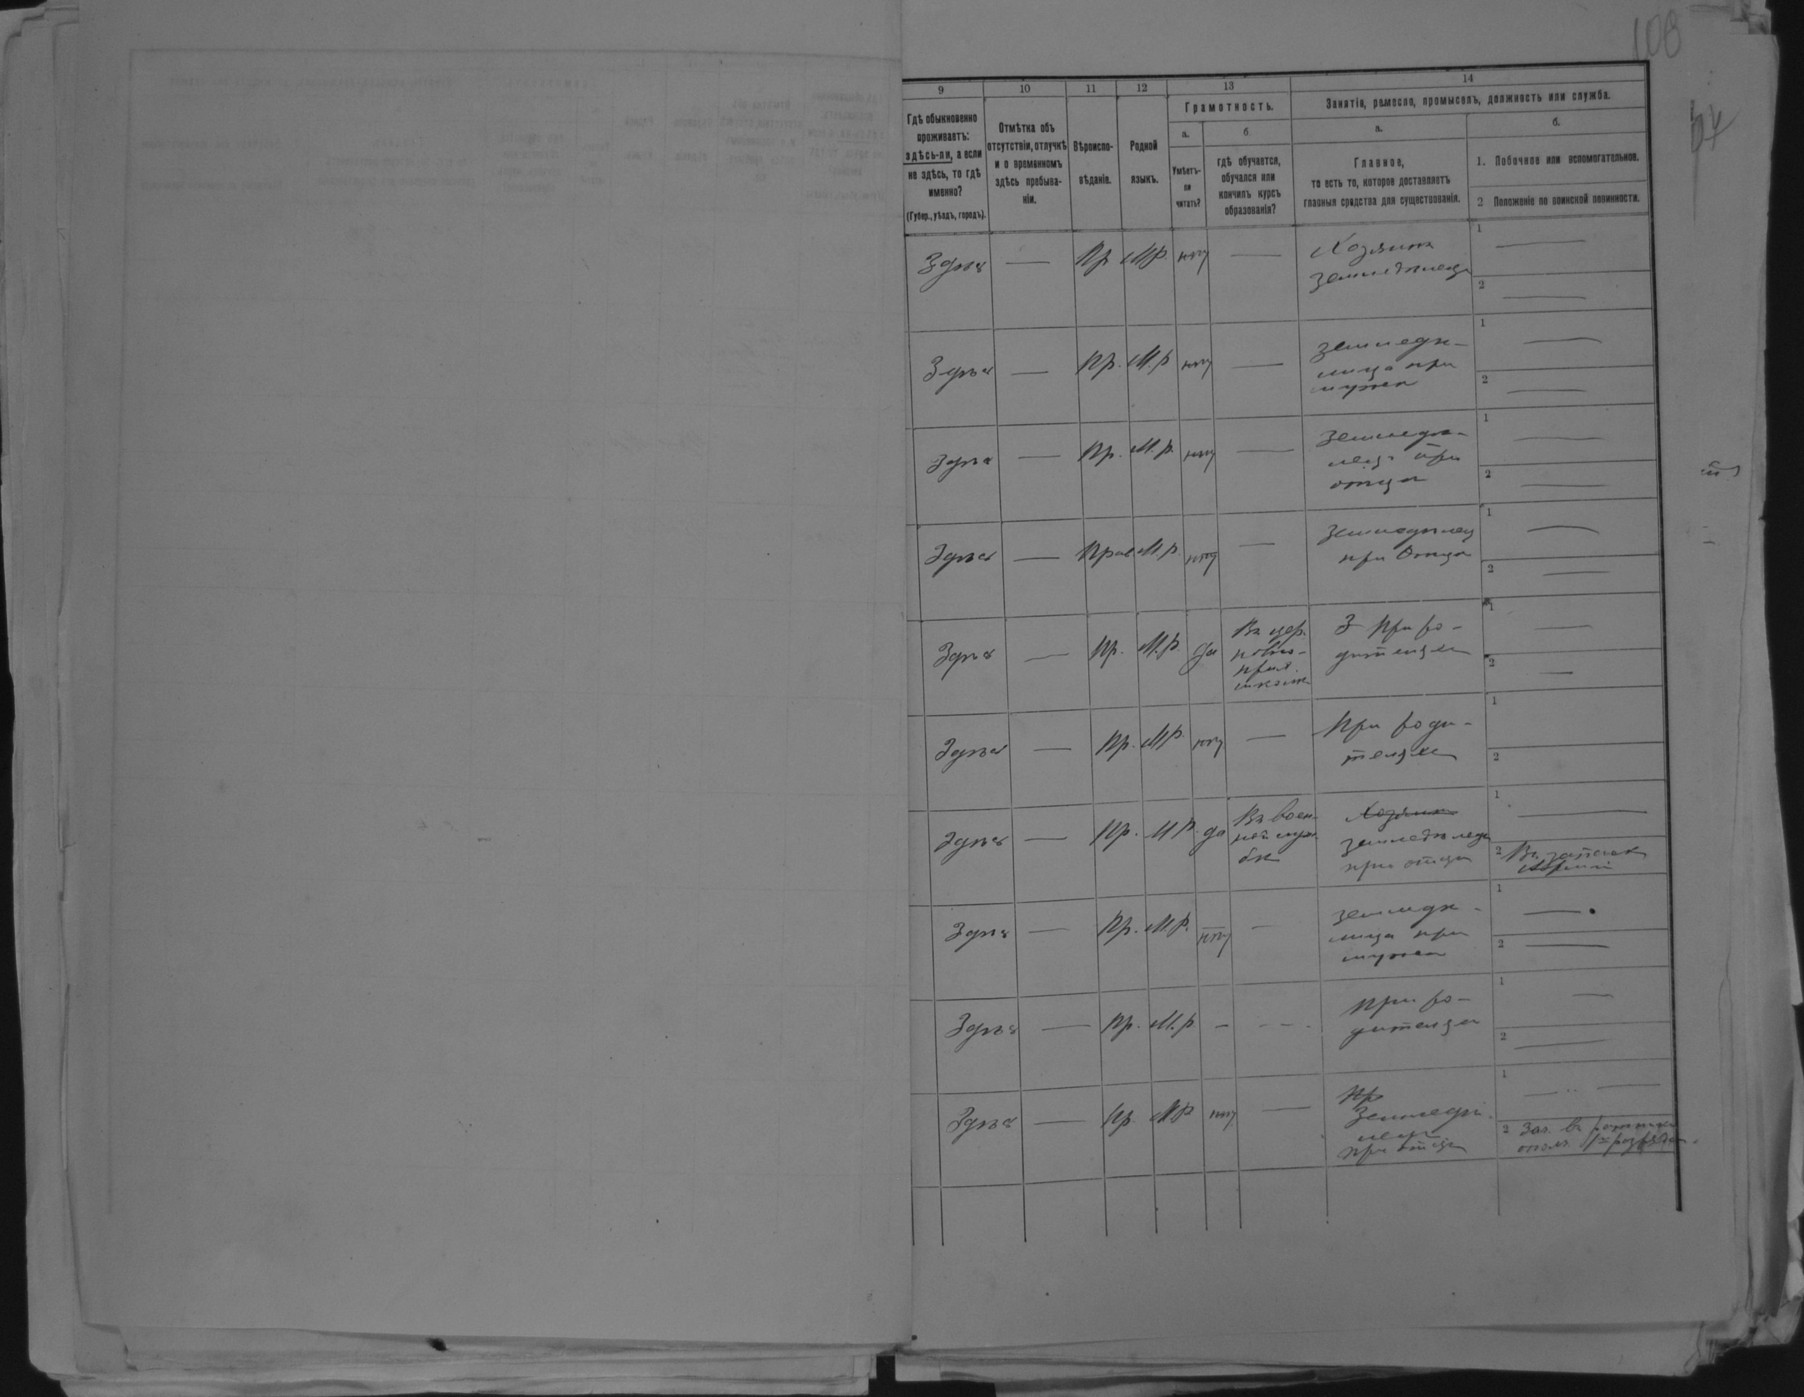 108
9 10 11 12 13 14
Гдѣ обыкновенно
проживаетъ:
здѣсь-ли, а если
не здѣсь, то гдѣ
именно?
(Губер., уѣздъ, городъ).
Отмѣтка объ
отсутствіи, отлучкѣ
и о временномъ
здѣсь пребыва-
ніи.
Вѣроиспо-
вѣданіе.
Родной
языкъ.
Грамотность.
а.
Умѣетъ-
ли
читать?
б
гдѣ обучается,
обучался или
кончилъ курсъ
образованія?
Занятіе, ремесло, промыселъ, должность или служба.
а.
Главное,
то есть то, которое доставляетъ
главныя средства для существованія.
б.
1. Побочное или вспомогательное.
2 Положеніе по воинской повинности.
Здѣсь — Пр М.р. нѣт —
Хозяинъ
земледѣлецъ
1 —
2 —
Здѣсь — Пр. М.р нѣт —
земледѣ-
лица при
мужѣ
1 —
2 —
Здѣсь — Пр. М.р. нѣт —
Земледѣ-
лецъ при
отцѣ
1 —
2 —
Здѣсь — Прав М.р. нѣт —
Земледѣлец
при Отцѣ
1 —
2 —
Здѣсь — Пр. М.р. да
Въ цер.
ковно-
прих.
школѣ
З При ро-
дителяхъ
1 —
2 —
Здѣсь — Пр. М.р. нѣт —
При роди-
теляхъ
1
2
Здѣсь — Пр. М.р. да
Въ воен-
ной служ-
бѣ
Хозяинъ
земледѣлецъ
при отцѣ
1 —
2 Въ запасѣ
Арміи
Здѣсь — Пр. М.р. нѣт —
земледѣ-
лица при
мужѣ
1 —
2 —
Здѣсь — Пр. М.р — - - -
При ро-
дителяхъ
1 —
2 —
Здѣсь — Пр. М.р нѣт —
Пр
Земледѣ-
лецъ
при отцѣ
1 —
2 Зач. въ ратники
опол. разряда